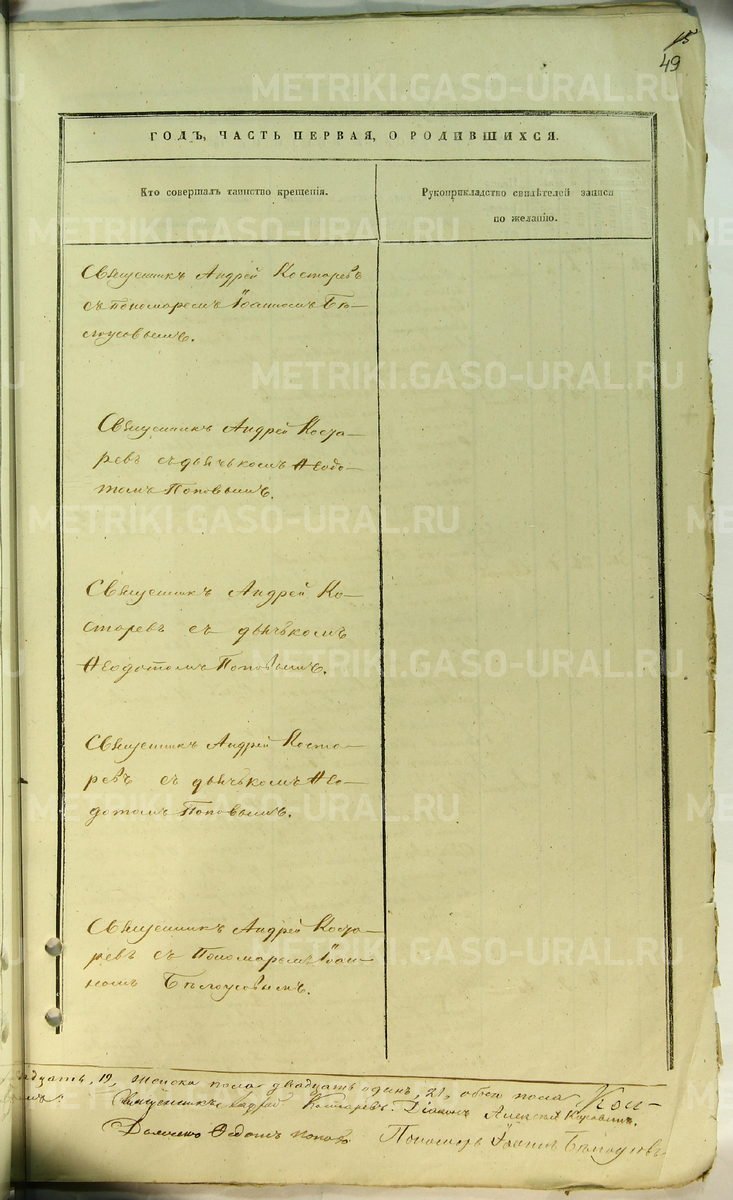 15
49
ГОДЪ, ЧАСТЬ ПЕРВАЯ, О РОДИВШИХСЯ.
Кто совершалъ таинство крещенія.
Рукоприкладство свидѣтелей записи
по желанію.
Священникъ Андрей Костаревъ
съ пономаремъ Іоанномъ Бѣ-
лоусовымъ.
Священникъ Андрей Коста-
ревъ съ дьячькомъ Ѳеодо-
томъ Поповымъ.
Священникъ Андрей Ко-
старевъ съ дьячькомъ
Ѳеодотомъ Поповымъ.
Священникъ Андрей Коста-
ревъ съ дьячькомъ Ѳео-
дотомъ Поповымъ.
Священникъ Андрей Коста-
ревъ съ Пономаремъ Іоан-
номъ Бѣлоусовымъ.
19, женска пола двадцать одинъ, 21, обоего пола
Священникъ Андрей Костаревъ. Діаконъ Алексѣй
Дьячекъ Федотъ Поповъ Пономарь Іоаннъ Бѣлоусовъ
METRIKI.GASO-URAL.RU